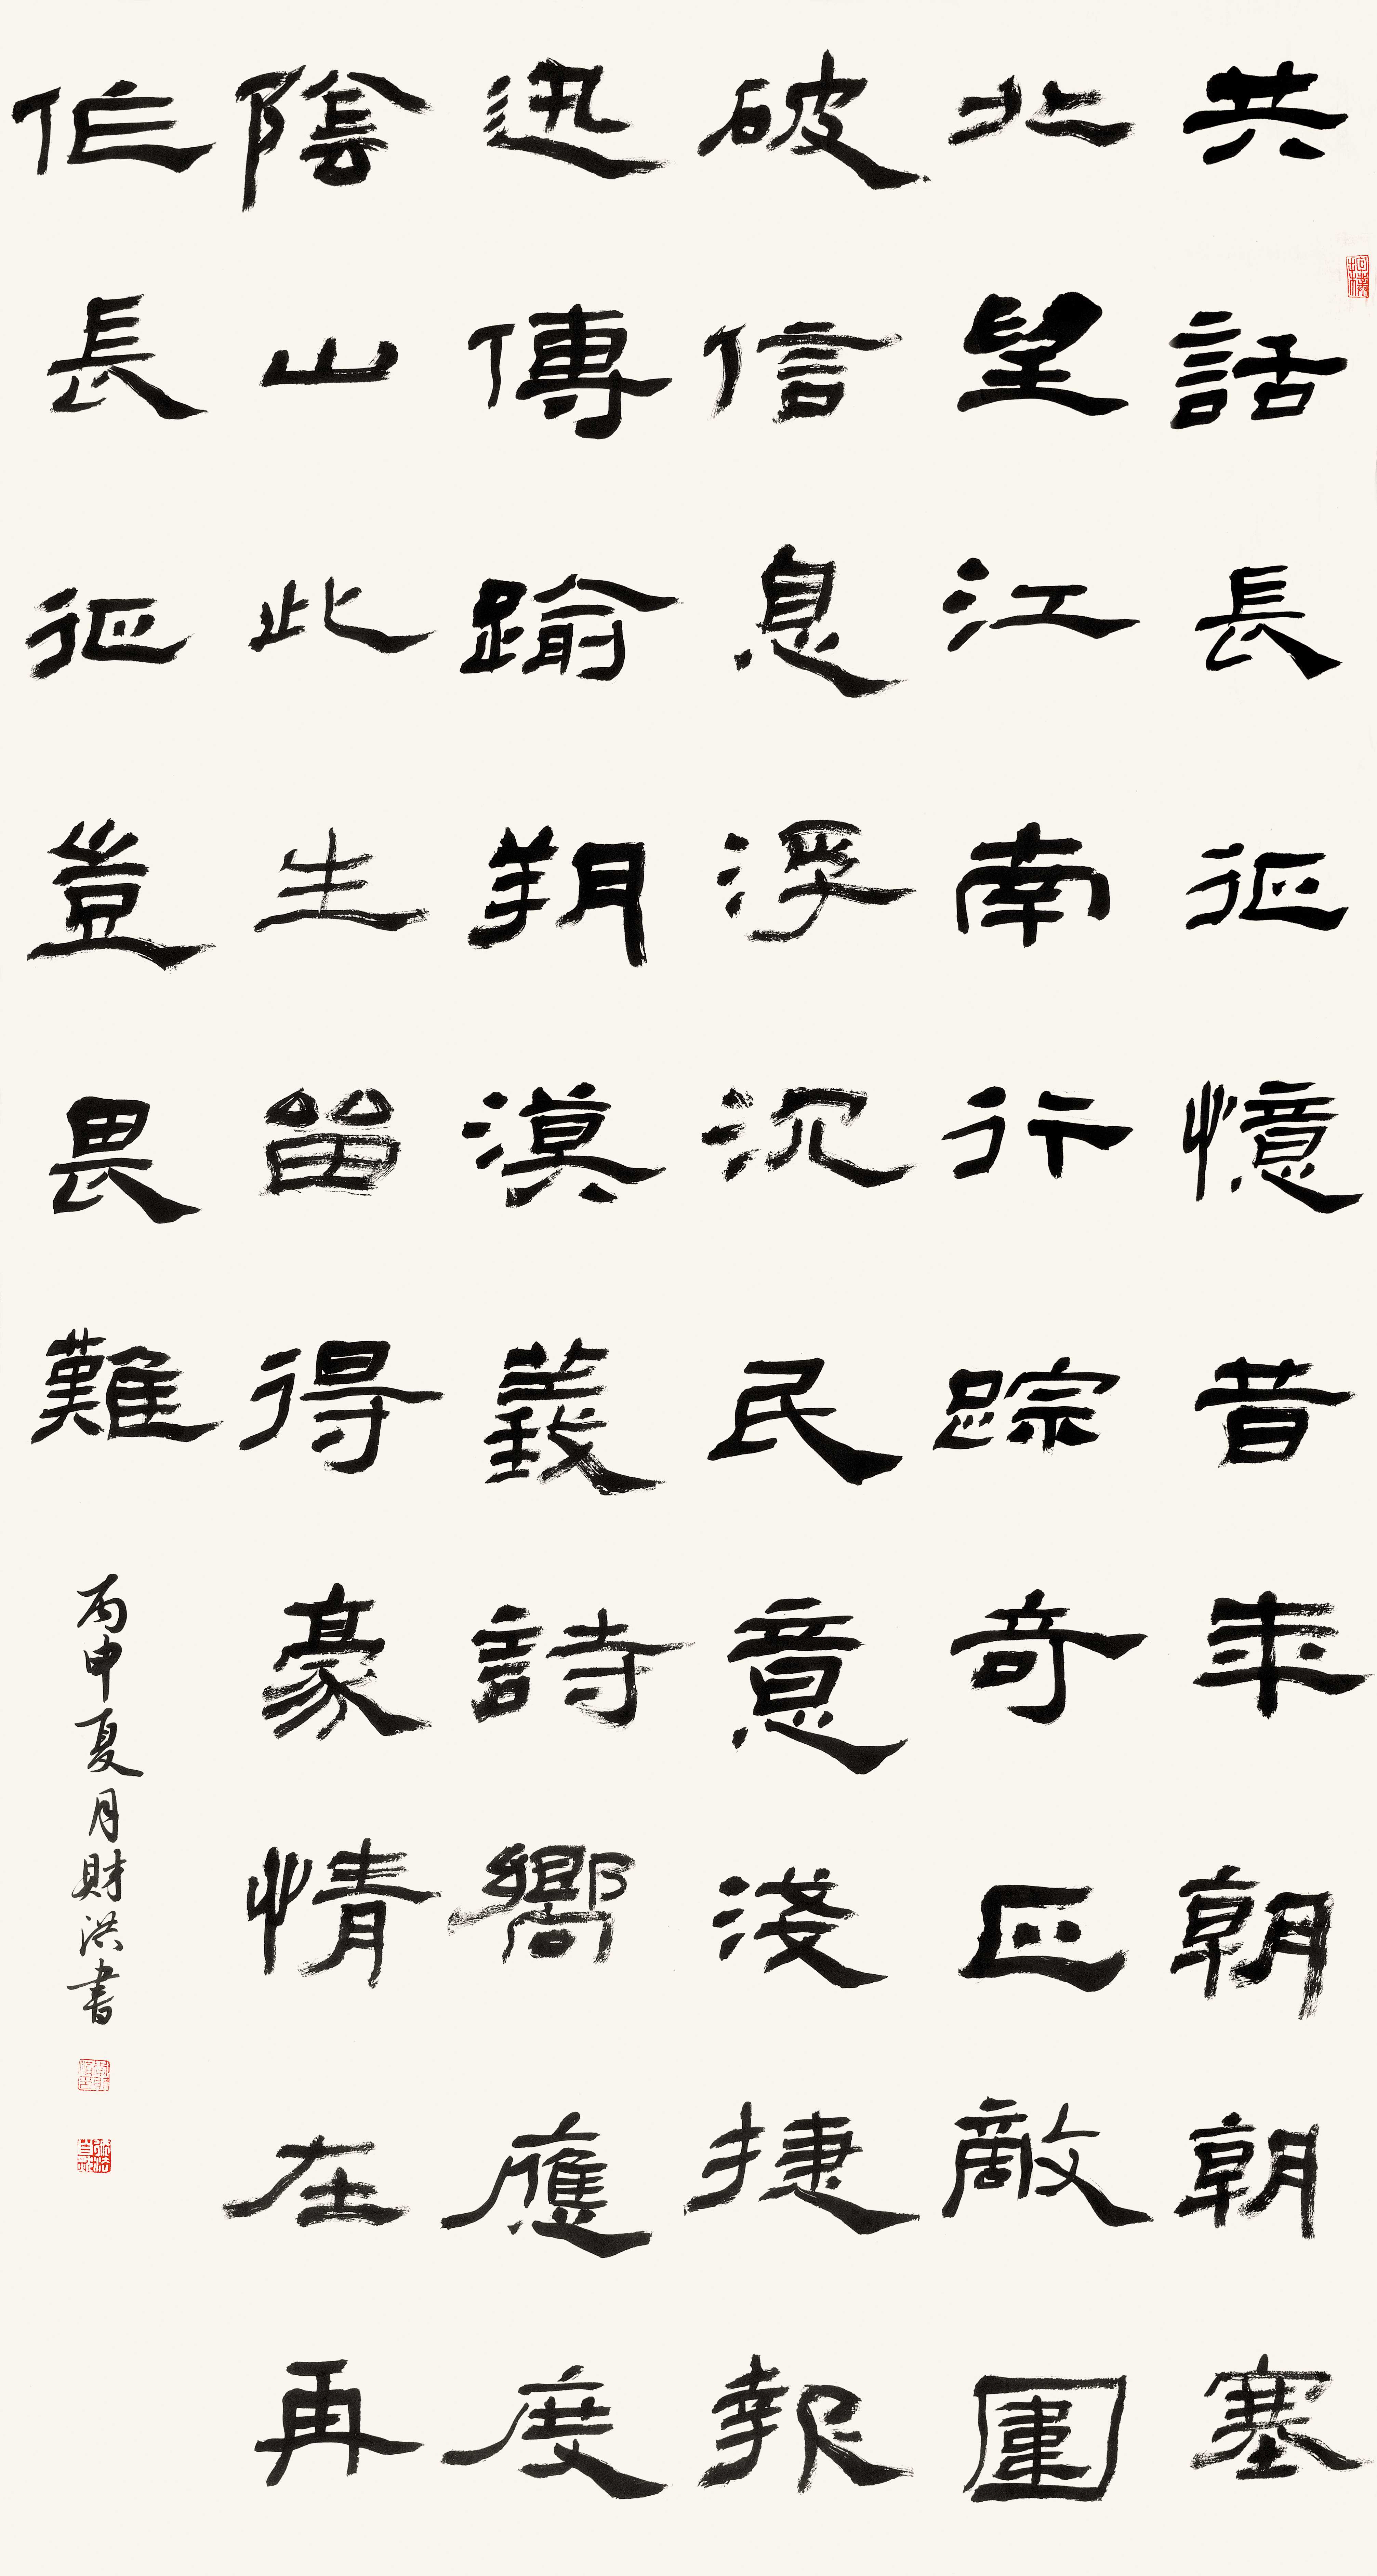 共話長征憶昔年朝朝塞
北望江南行踪奇正敵圍
破信息浮沉民意淺捷報
迅傳踰朔漠義詩嚮應度
陰山此生苗得豪情在再
作長征豈畏難
丙申夏月財洪書